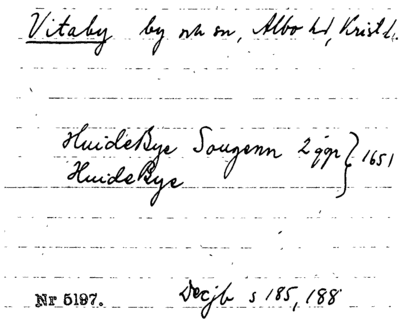 Vitaby by o sn sn, Albo hd, Krist l.
HuideBye Sougenn 2 ggr } 1651
HuideBye
Nr 5197. Decjb s 185, 188